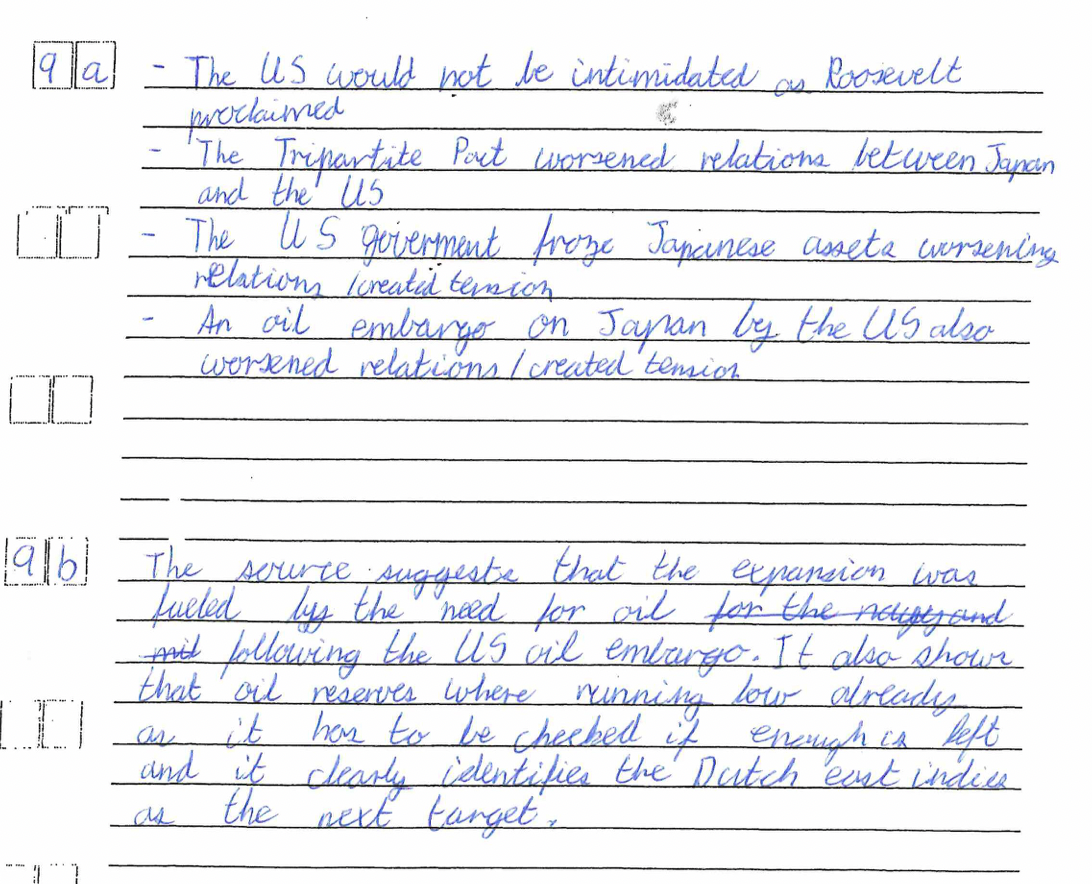 9a - The US would not be intimidated as Roosevelt
proclaimed
- The Tripartite Pact worsened relations between Japan
and the US
- The US goverment froze Japanese assets worsening
relations /created tension
- An oil embargo on Japan by the US also
worsened relations / created tension
9b The source suggests that the expansion was
fueled by the need for oil for the navy and
mil following the US oil embargo. It also shows
that oil reserves where running low already
as it has to be checked if enough is left
and it clearly identifies the Dutch east indies
as the next target.